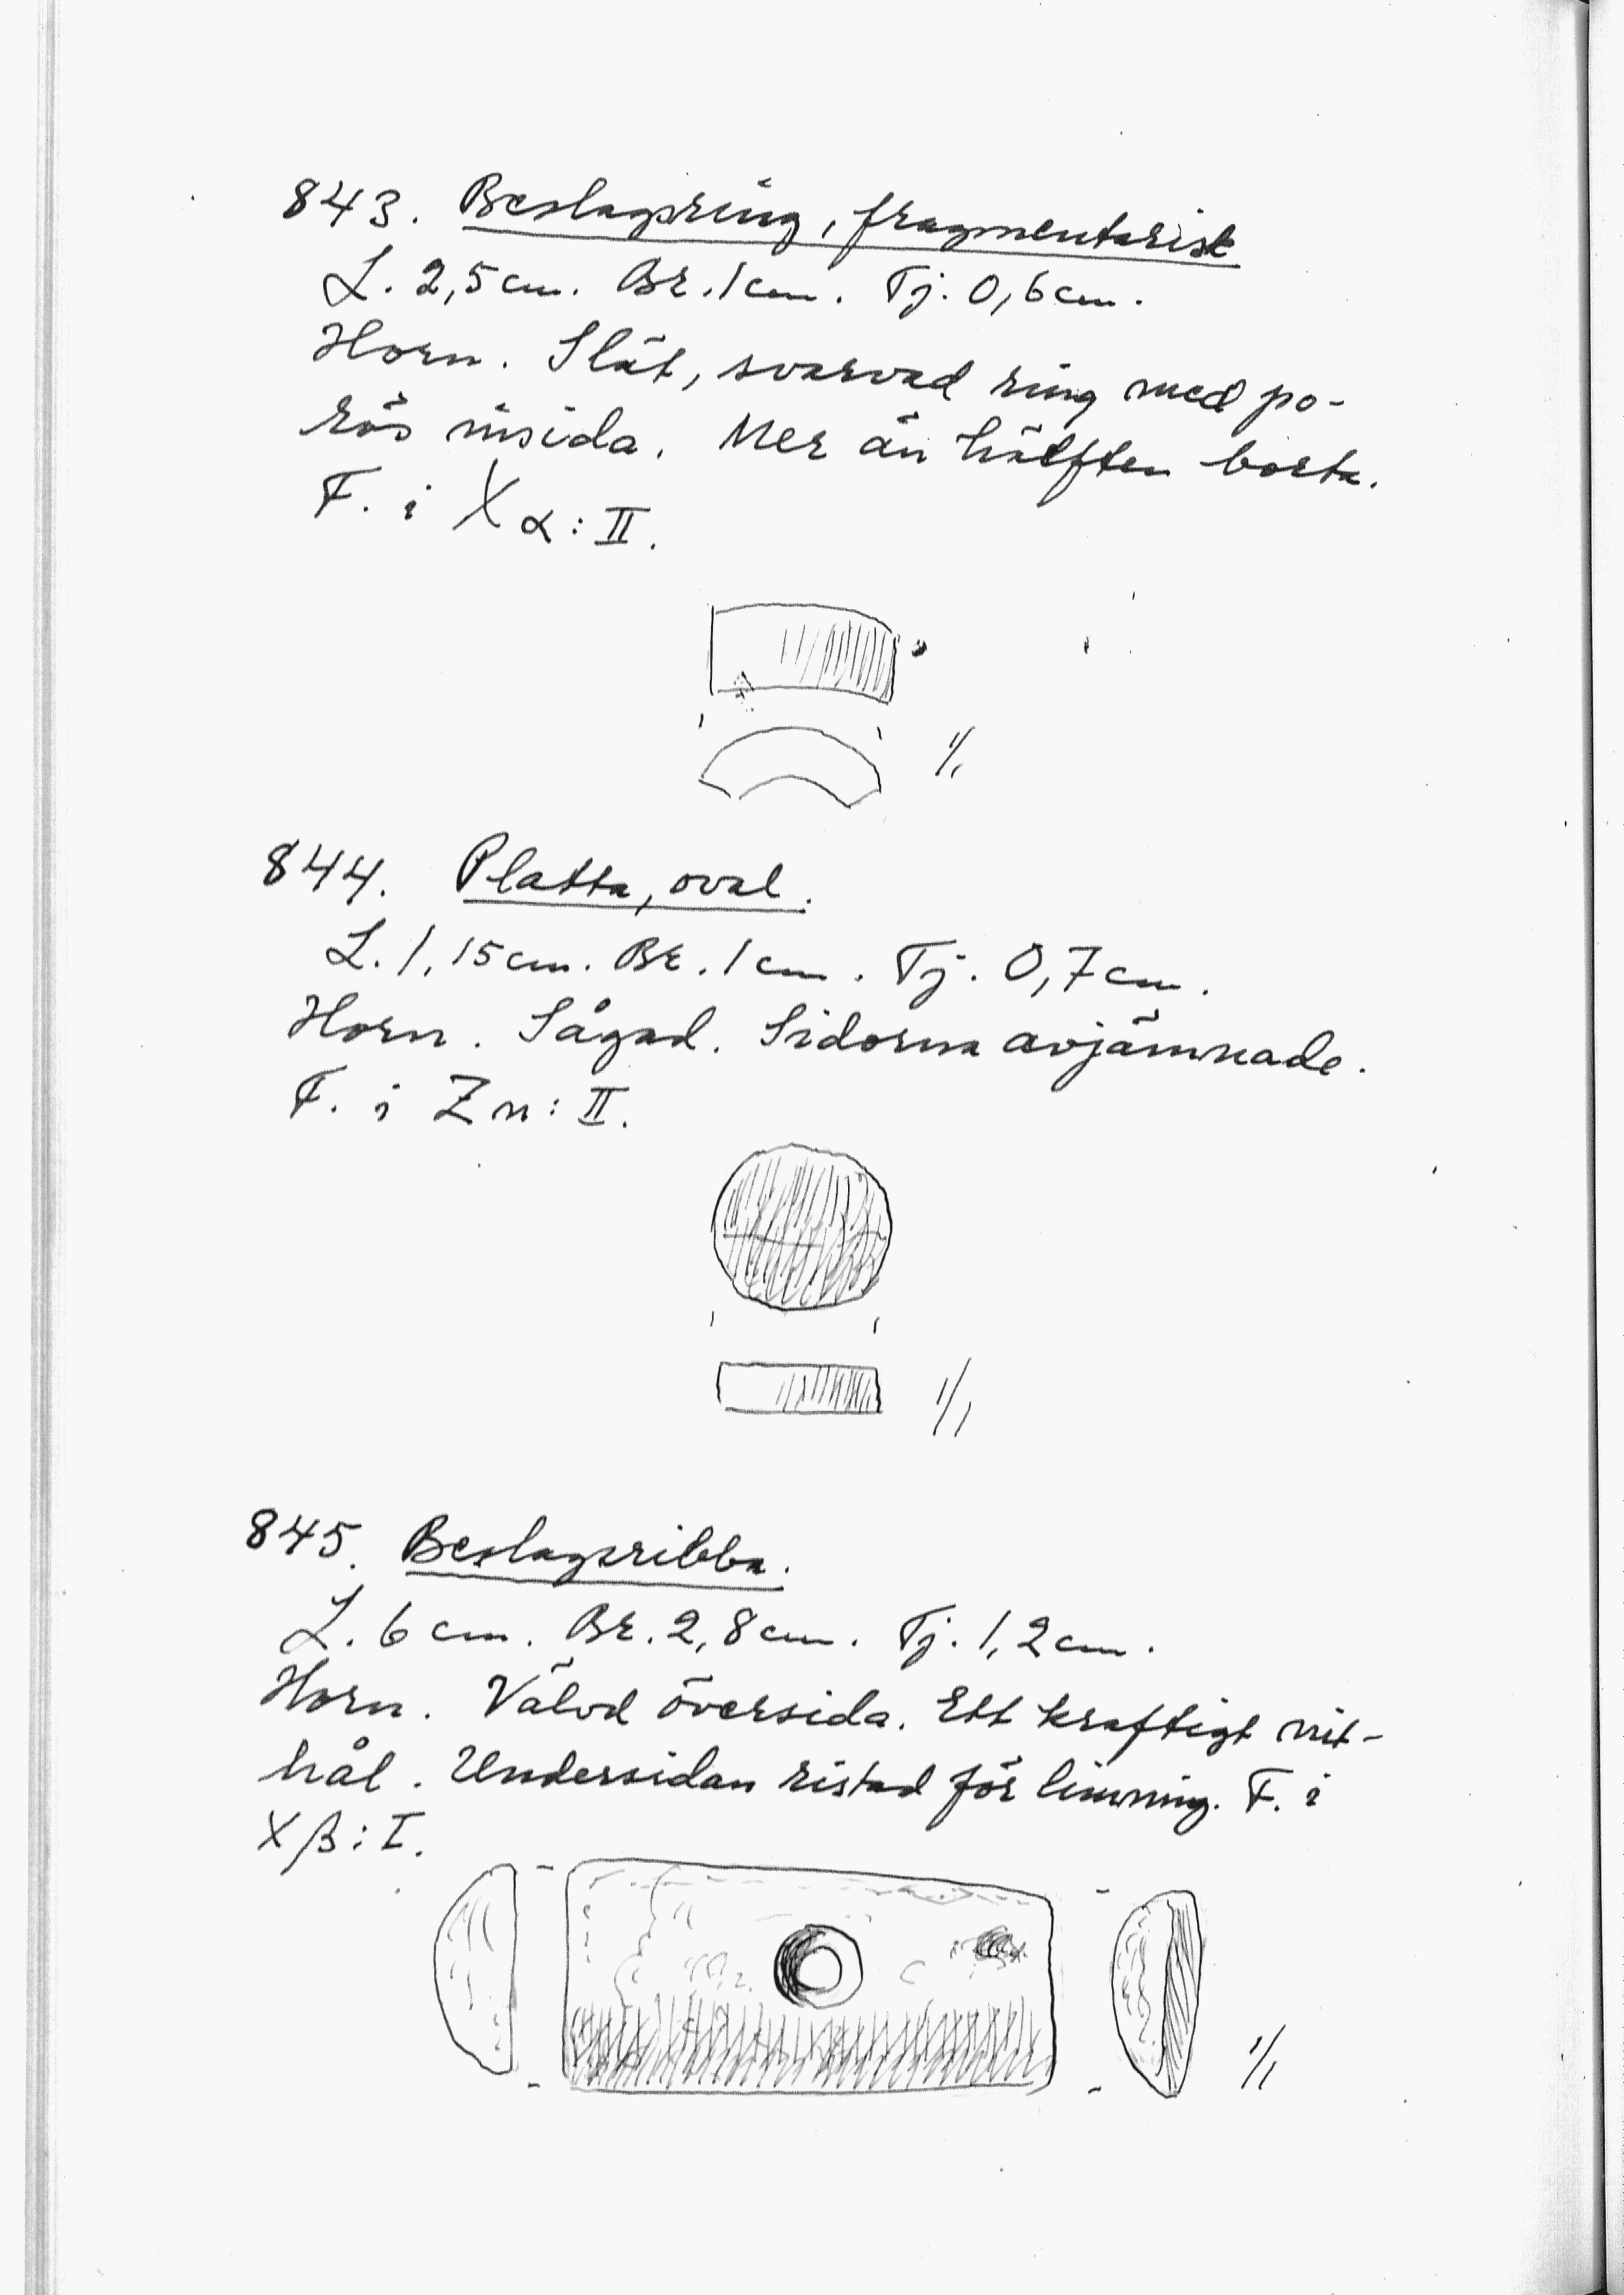 843. Beslagsring, fragmentarisk
L. 2,5 cm. Br. 1 cm. Tj. 0,6 cm.
Horn. Slät, svarvad ring med po-
rös insida. Mer än hälften borta.
F. i X α : II.
1/1
844. Platta, oval.
L. 1,15 cm. Br. 1 cm. Tj. 0,7 cm.
Horn. Sågad. Sidorna avjämnade.
F. i Z n : II.
1/1
845. Beslagsribba.
L. 6 cm. Br. 2,8 cm. Tj. 1,2 cm.
Horn. Välvd översida. Ett kraftigt nit-
hål. Undersidan ristad för limning. F. i
X β : I.
1/1